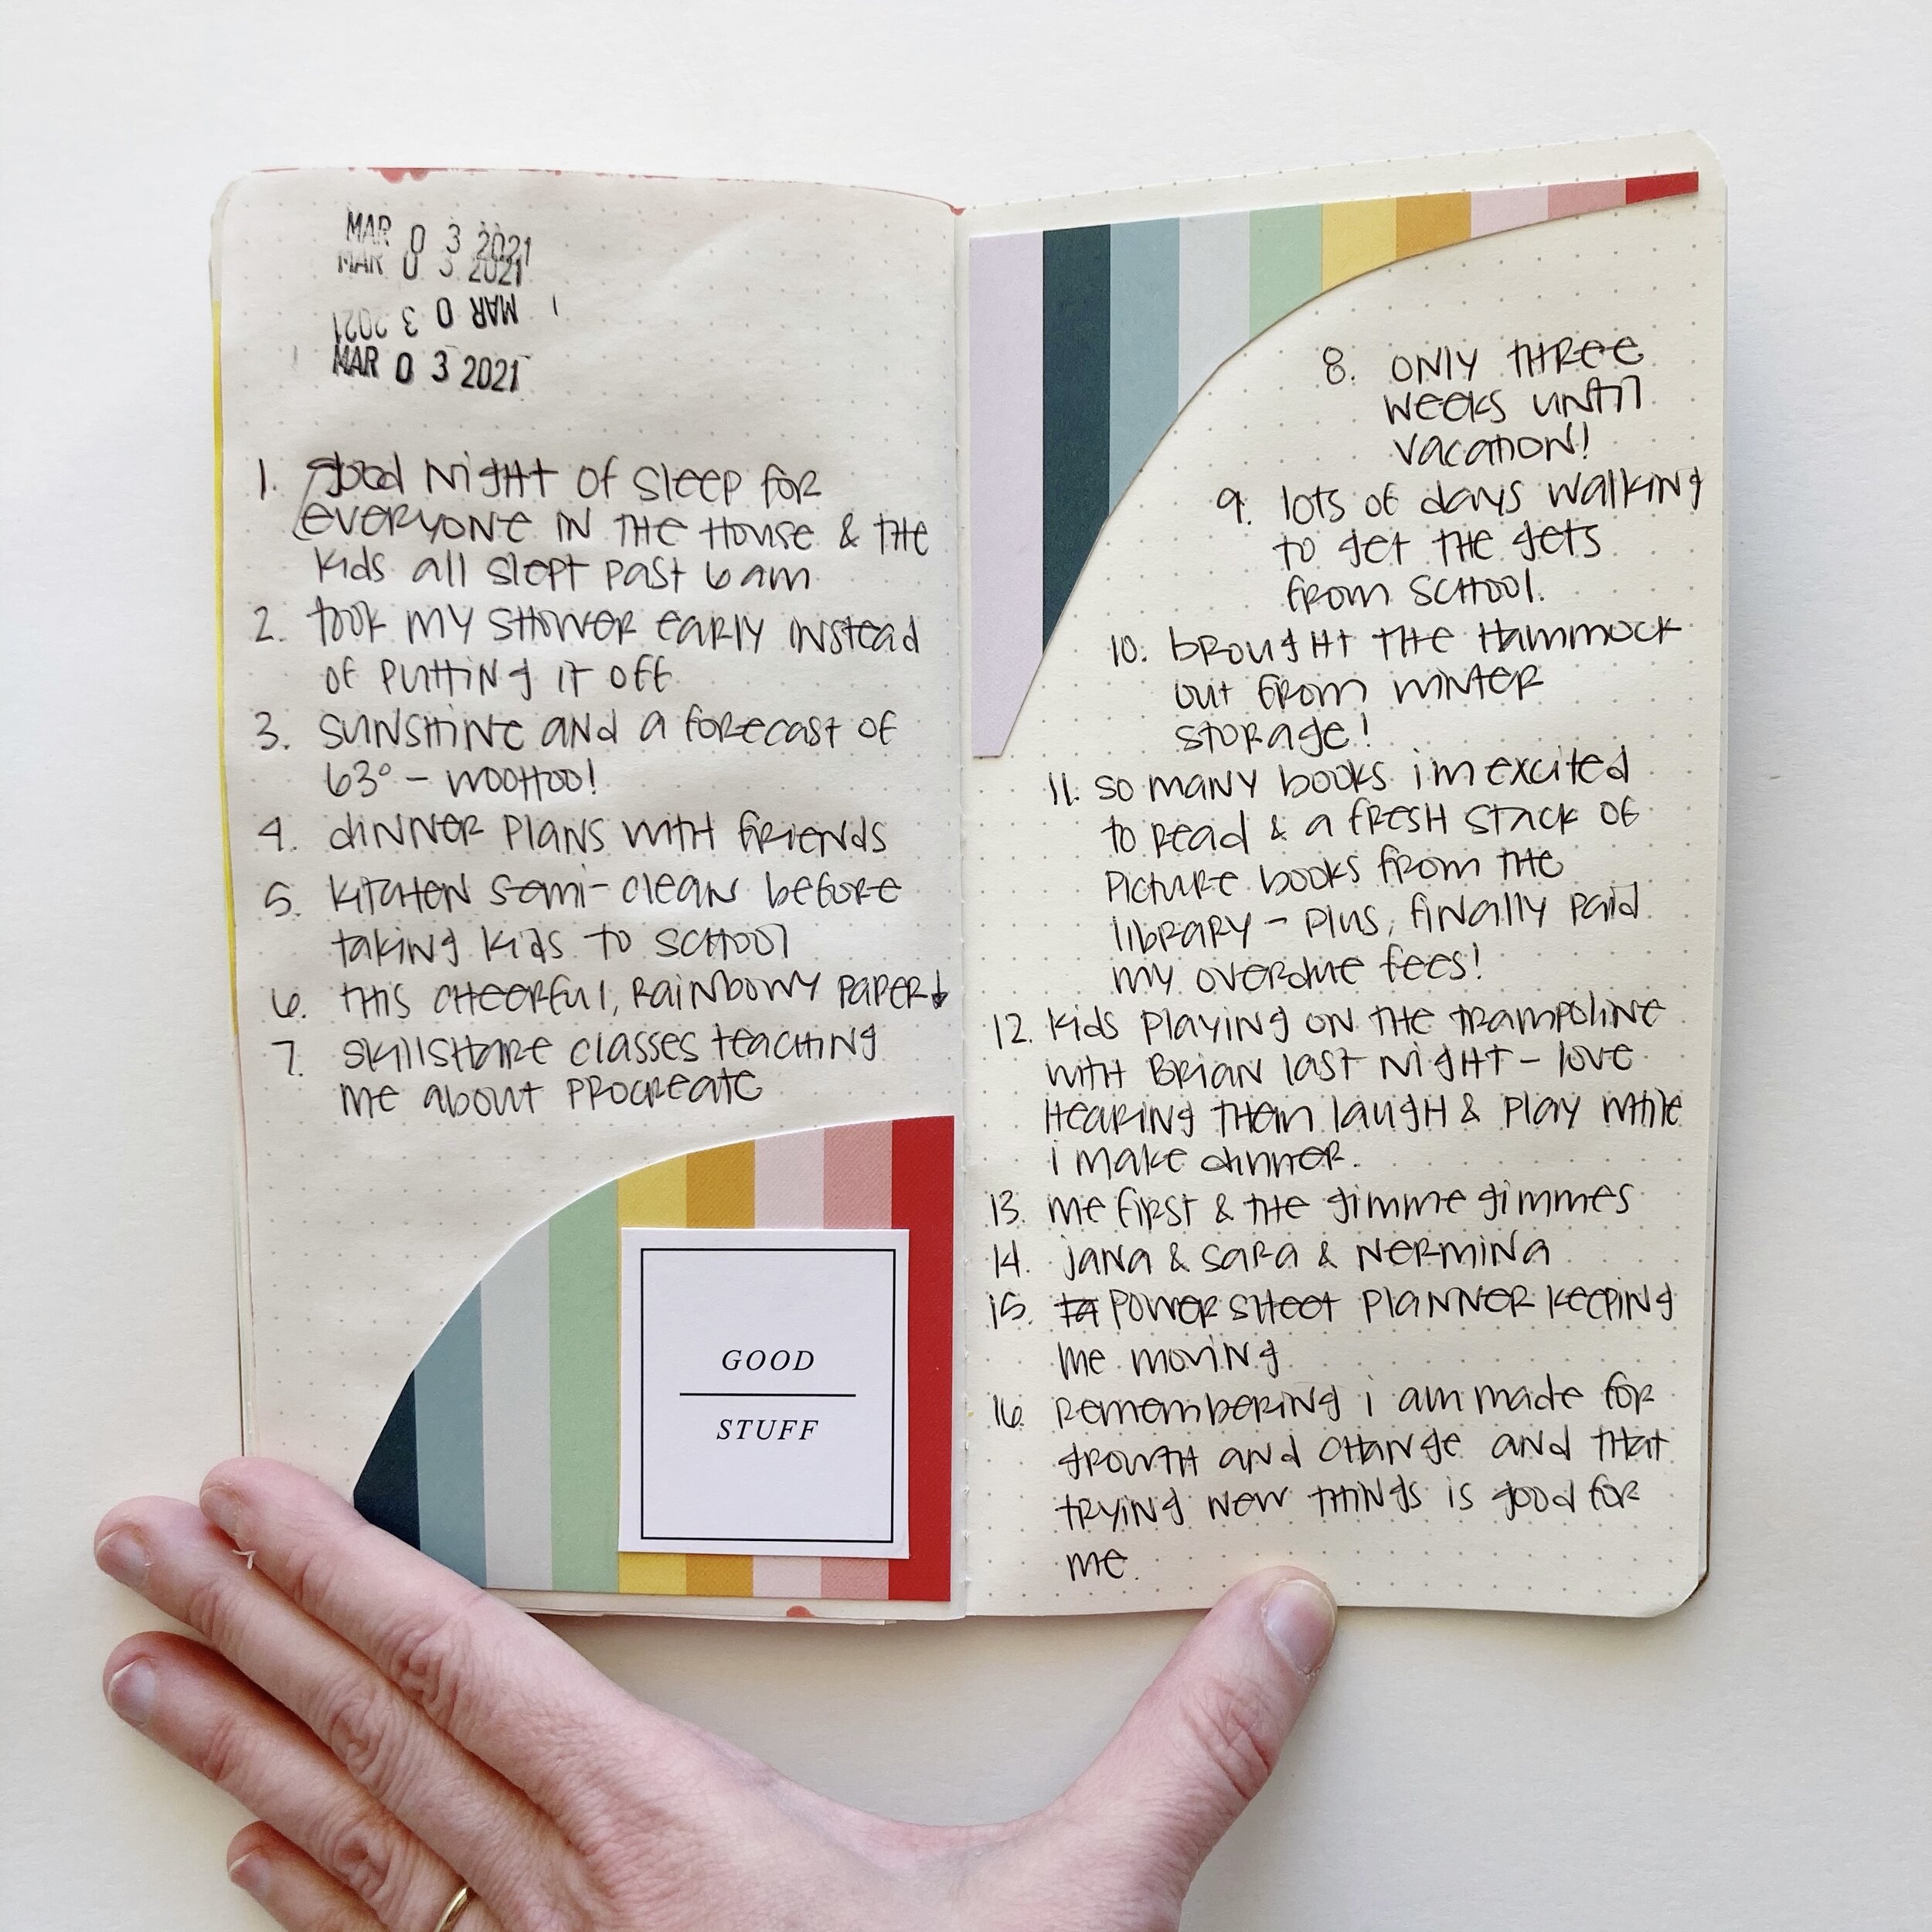 MAR 0 3 2021
MAR 0 3 2021
MAR 0 3 2021
MAR 0 3 2021
1. good night of sleep for
everyone in the house & the
kids all slept past 6 am
2. took my shower early instead
of putting it off
3. sunshine and a forecast of
63° - woohoo!
4. dinner plans with friends
5. kitchen semi-clean before
taking kids to school
6. this cheerful, rainbowy paper↓
7. skillshare classes teaching
me about procreate
GOOD
STUFF
8. only three
weeks until
vacation!
9. lots of days walking
to get the gets
from school.
10. brought the hammock
out from winter
storage!
11. so many books i'm excited
to read & a fresh stack of
picture books from the
library - plus, finally paid
my overdue fees!
12. kids playing on the trampoline
with Brian last night - love
hearing them laugh & play while
i make dinner.
13. me first & the gimme gimmes
14. jana & sara & nermina
15. powersheet planner keeping
me moving
16. remembering i am made for
growth and change and that
trying new things is good for
me.